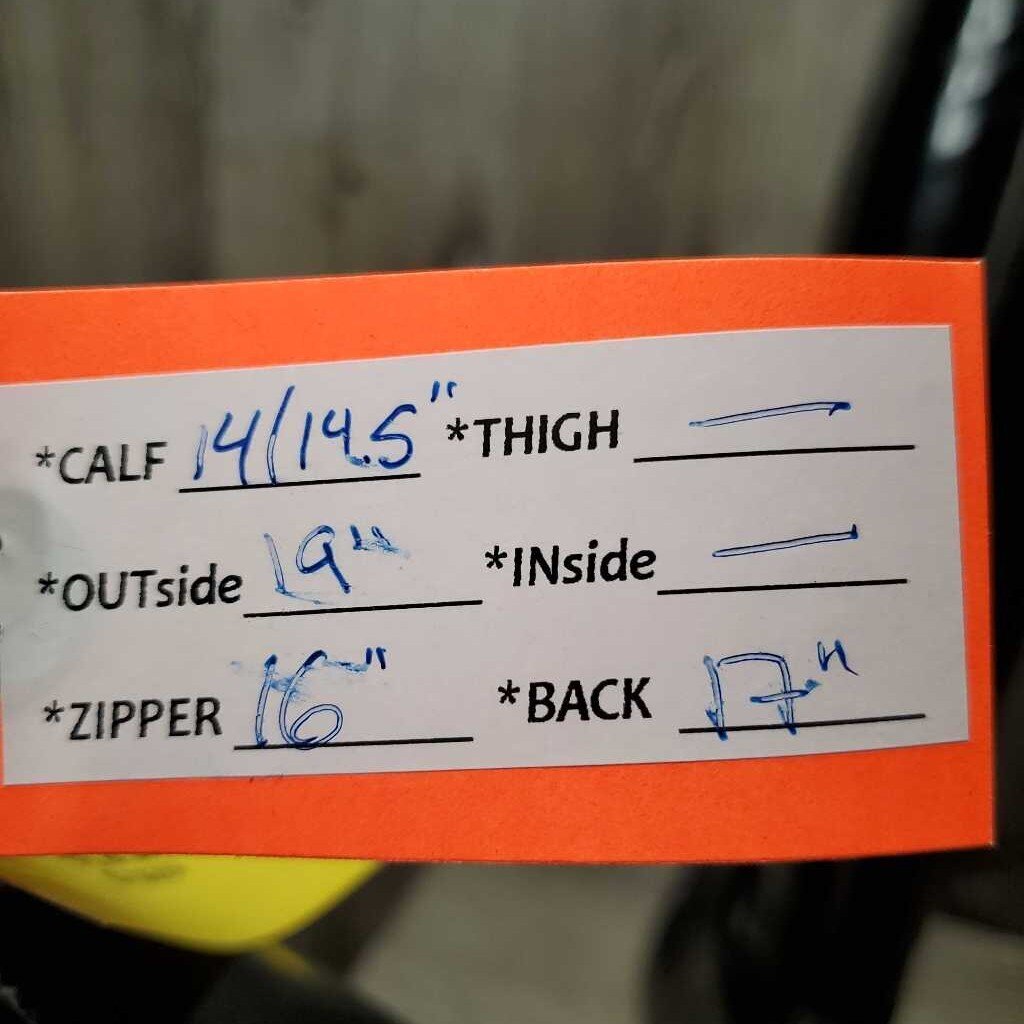 *CALF 14/14.5" *THIGH —
*OUTside 19" *INside —
*ZIPPER 16" *BACK 17"